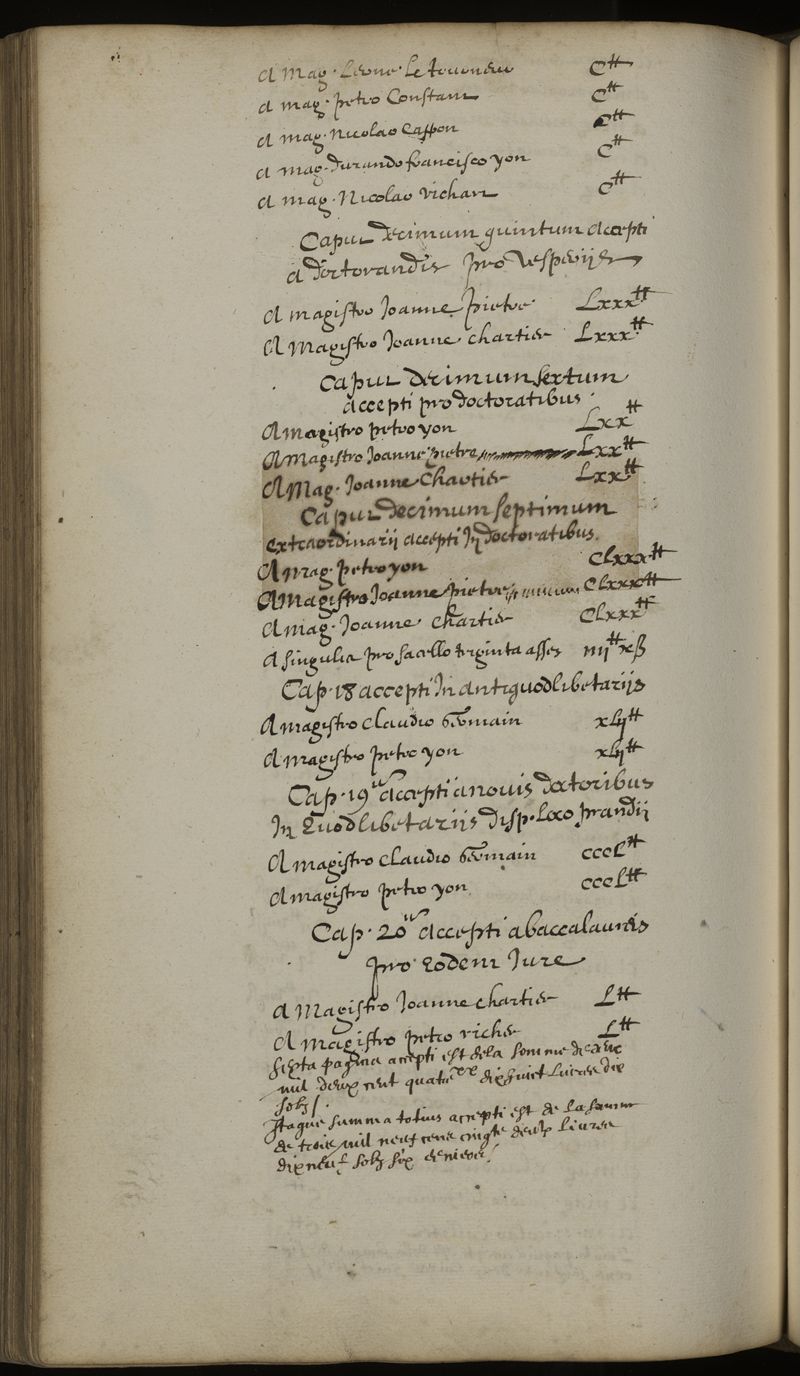 A Mag. Leone. Le tourneur C᛭
A mag. petro Constant C᛭
A mag. Nicolao Cappon C᛭
A mag. durando francisco yon C᛭
A mag. Nicolao richart C᛭
Caput decimum quintum accepti
a doctorandis pro Vesperijs
A magistro Joanne pietre Lxxx᛭
A Magistro Joanne chartier Lxxx᛭
Caput decimum sextum
accepti pro doctoratibus
A magistro petro yon Lxx᛭
A Magistro Joanne pietre Lxx᛭
A Mag. Joanne Chartier Lxx᛭
Caput decimum septimum
extraordinarij accepti In doctoratibus.
A mag. petro yon Clxxx᛭
A Magistro Joanne pietre Clxxx᛭
A mag. Joanne chartier Clxxx᛭
A singulis pro sacello triginta asses iiij᛭ xß
Cap. 18 accepti In antiquodlibetarijs
A magistro claudio Germain xlij᛭
A magistro petro yon xlij᛭
Cap. 19 accepti a novis doctoribus
In Quodlibetariis disp. loco prandij
A magistro claudio Germain cccL᛭
A magistro petro yon cccL᛭
Cap. 20 accepti a baccalaureis
pro eodem Jure
A Magistro Joanne chartier L᛭
A Magistro petro richer L᛭
Sexta pagina accepti est de la somme de deux
mil deux cent quatre dixhuict Livres dix
solz
Itaque summa totius accepti est de la somme
de trois mil neuf cens cinqte deux livres
dix neuf solz six deniers.